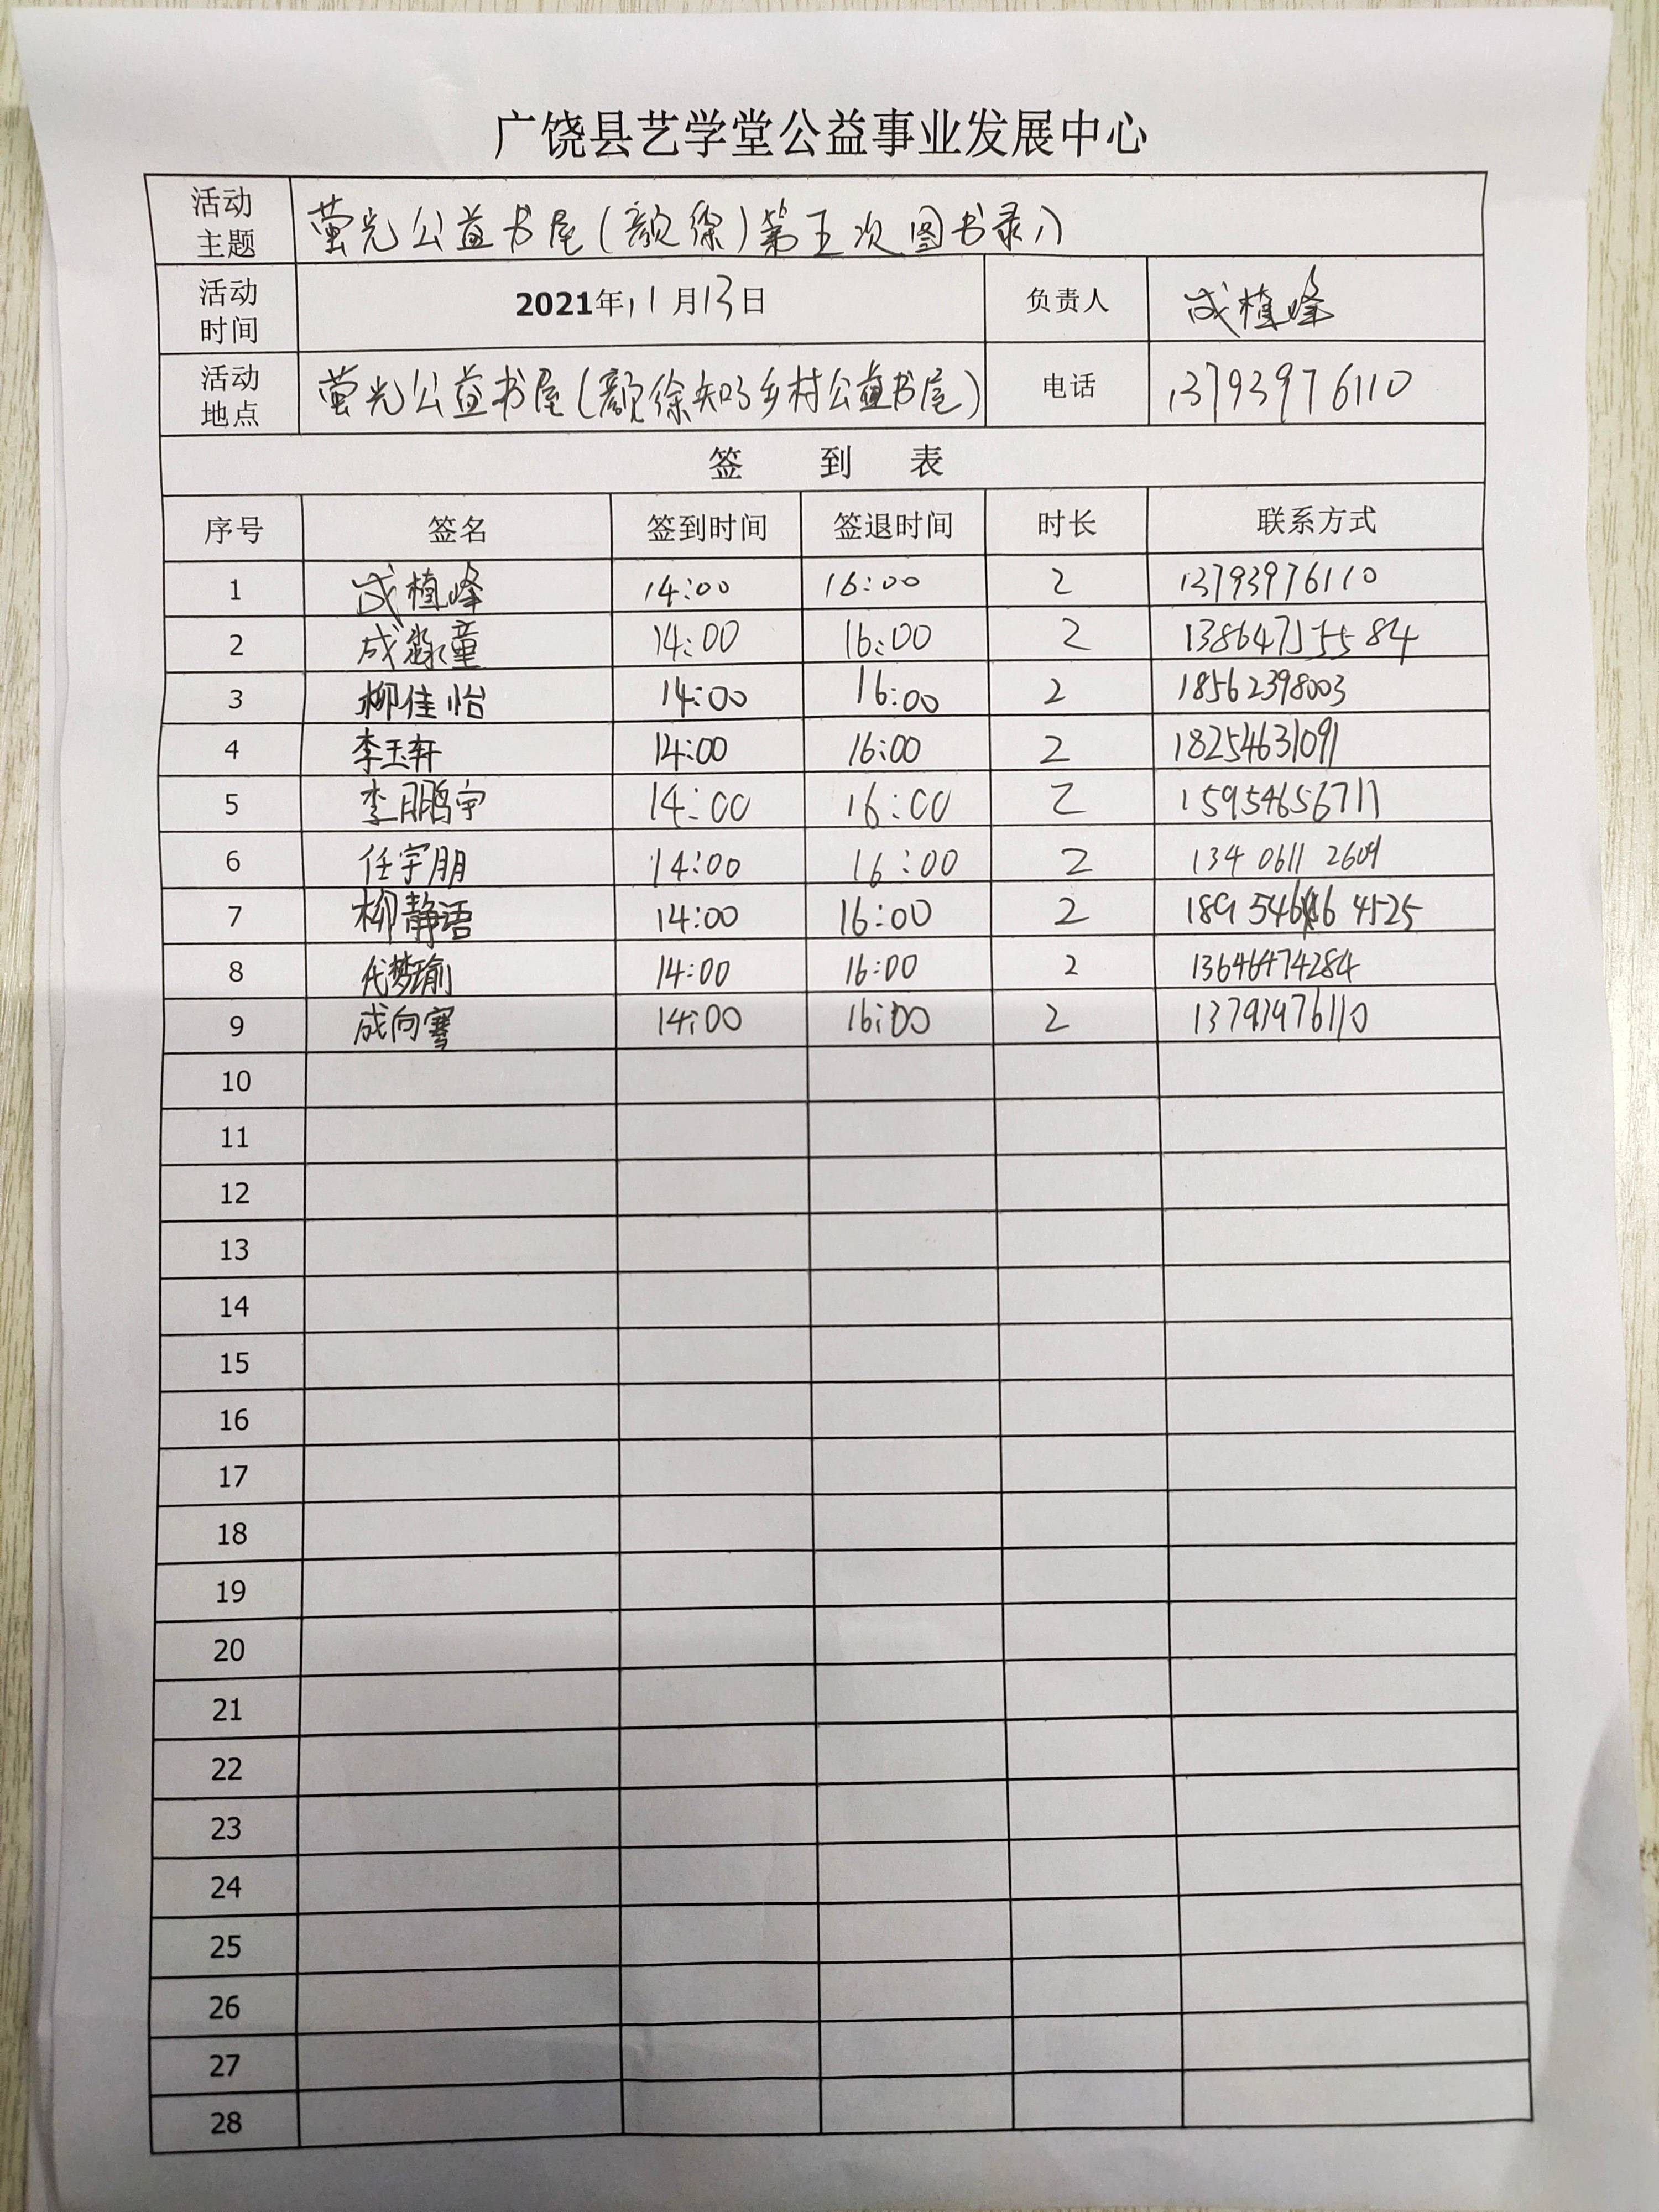 广饶县艺学堂公益事业发展中心
活动主题 萤光公益书屋(颜徐)第五次图书录入
活动时间 2021年11月13日 负责人 成植峰
活动地点 萤光公益书屋(颜徐知了乡村公益书屋) 电话 13793976110
签 到 表
序号 签名 签到时间 签退时间 时长 联系方式
1 成植峰 14:00 16:00 2 13793976110
2 成淼童 14:00 16:00 2 13864755584
3 柳佳怡 14:00 16:00 2 18562398003
4 李玉轩 14:00 16:00 2 18254631091
5 李鹏宇 14:00 16:00 2 15954656711
6 任宇朋 14:00 16:00 2 134 0611 2609
7 柳静语 14:00 16:00 2
8 代梦瑜 14:00 16:00 2 13646474284
9 成向骞 14:00 16:00 2 13793976110
10
11
12
13
14
15
16
17
18
19
20
21
22
23
24
25
26
27
28